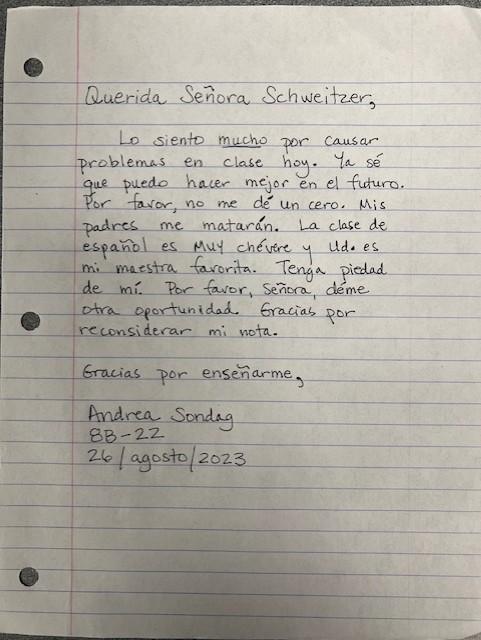 Querida Señora Schweitzer,
Lo siento mucho por causar
problemas en clase hoy. Ya sé
que puedo hacer mejor en el futuro.
Por favor, no me dé un cero. Mis
padres me matarán. La clase de
español es MUY chévere y Ud. es
mi maestra favorita. Tenga piedad
de mí. Por favor, Señora, déme
otra oportunidad. Gracias por
reconsiderar mi nota.
Gracias por enseñarme,
Andrea Sondag
8B-22
26/agosto/2023